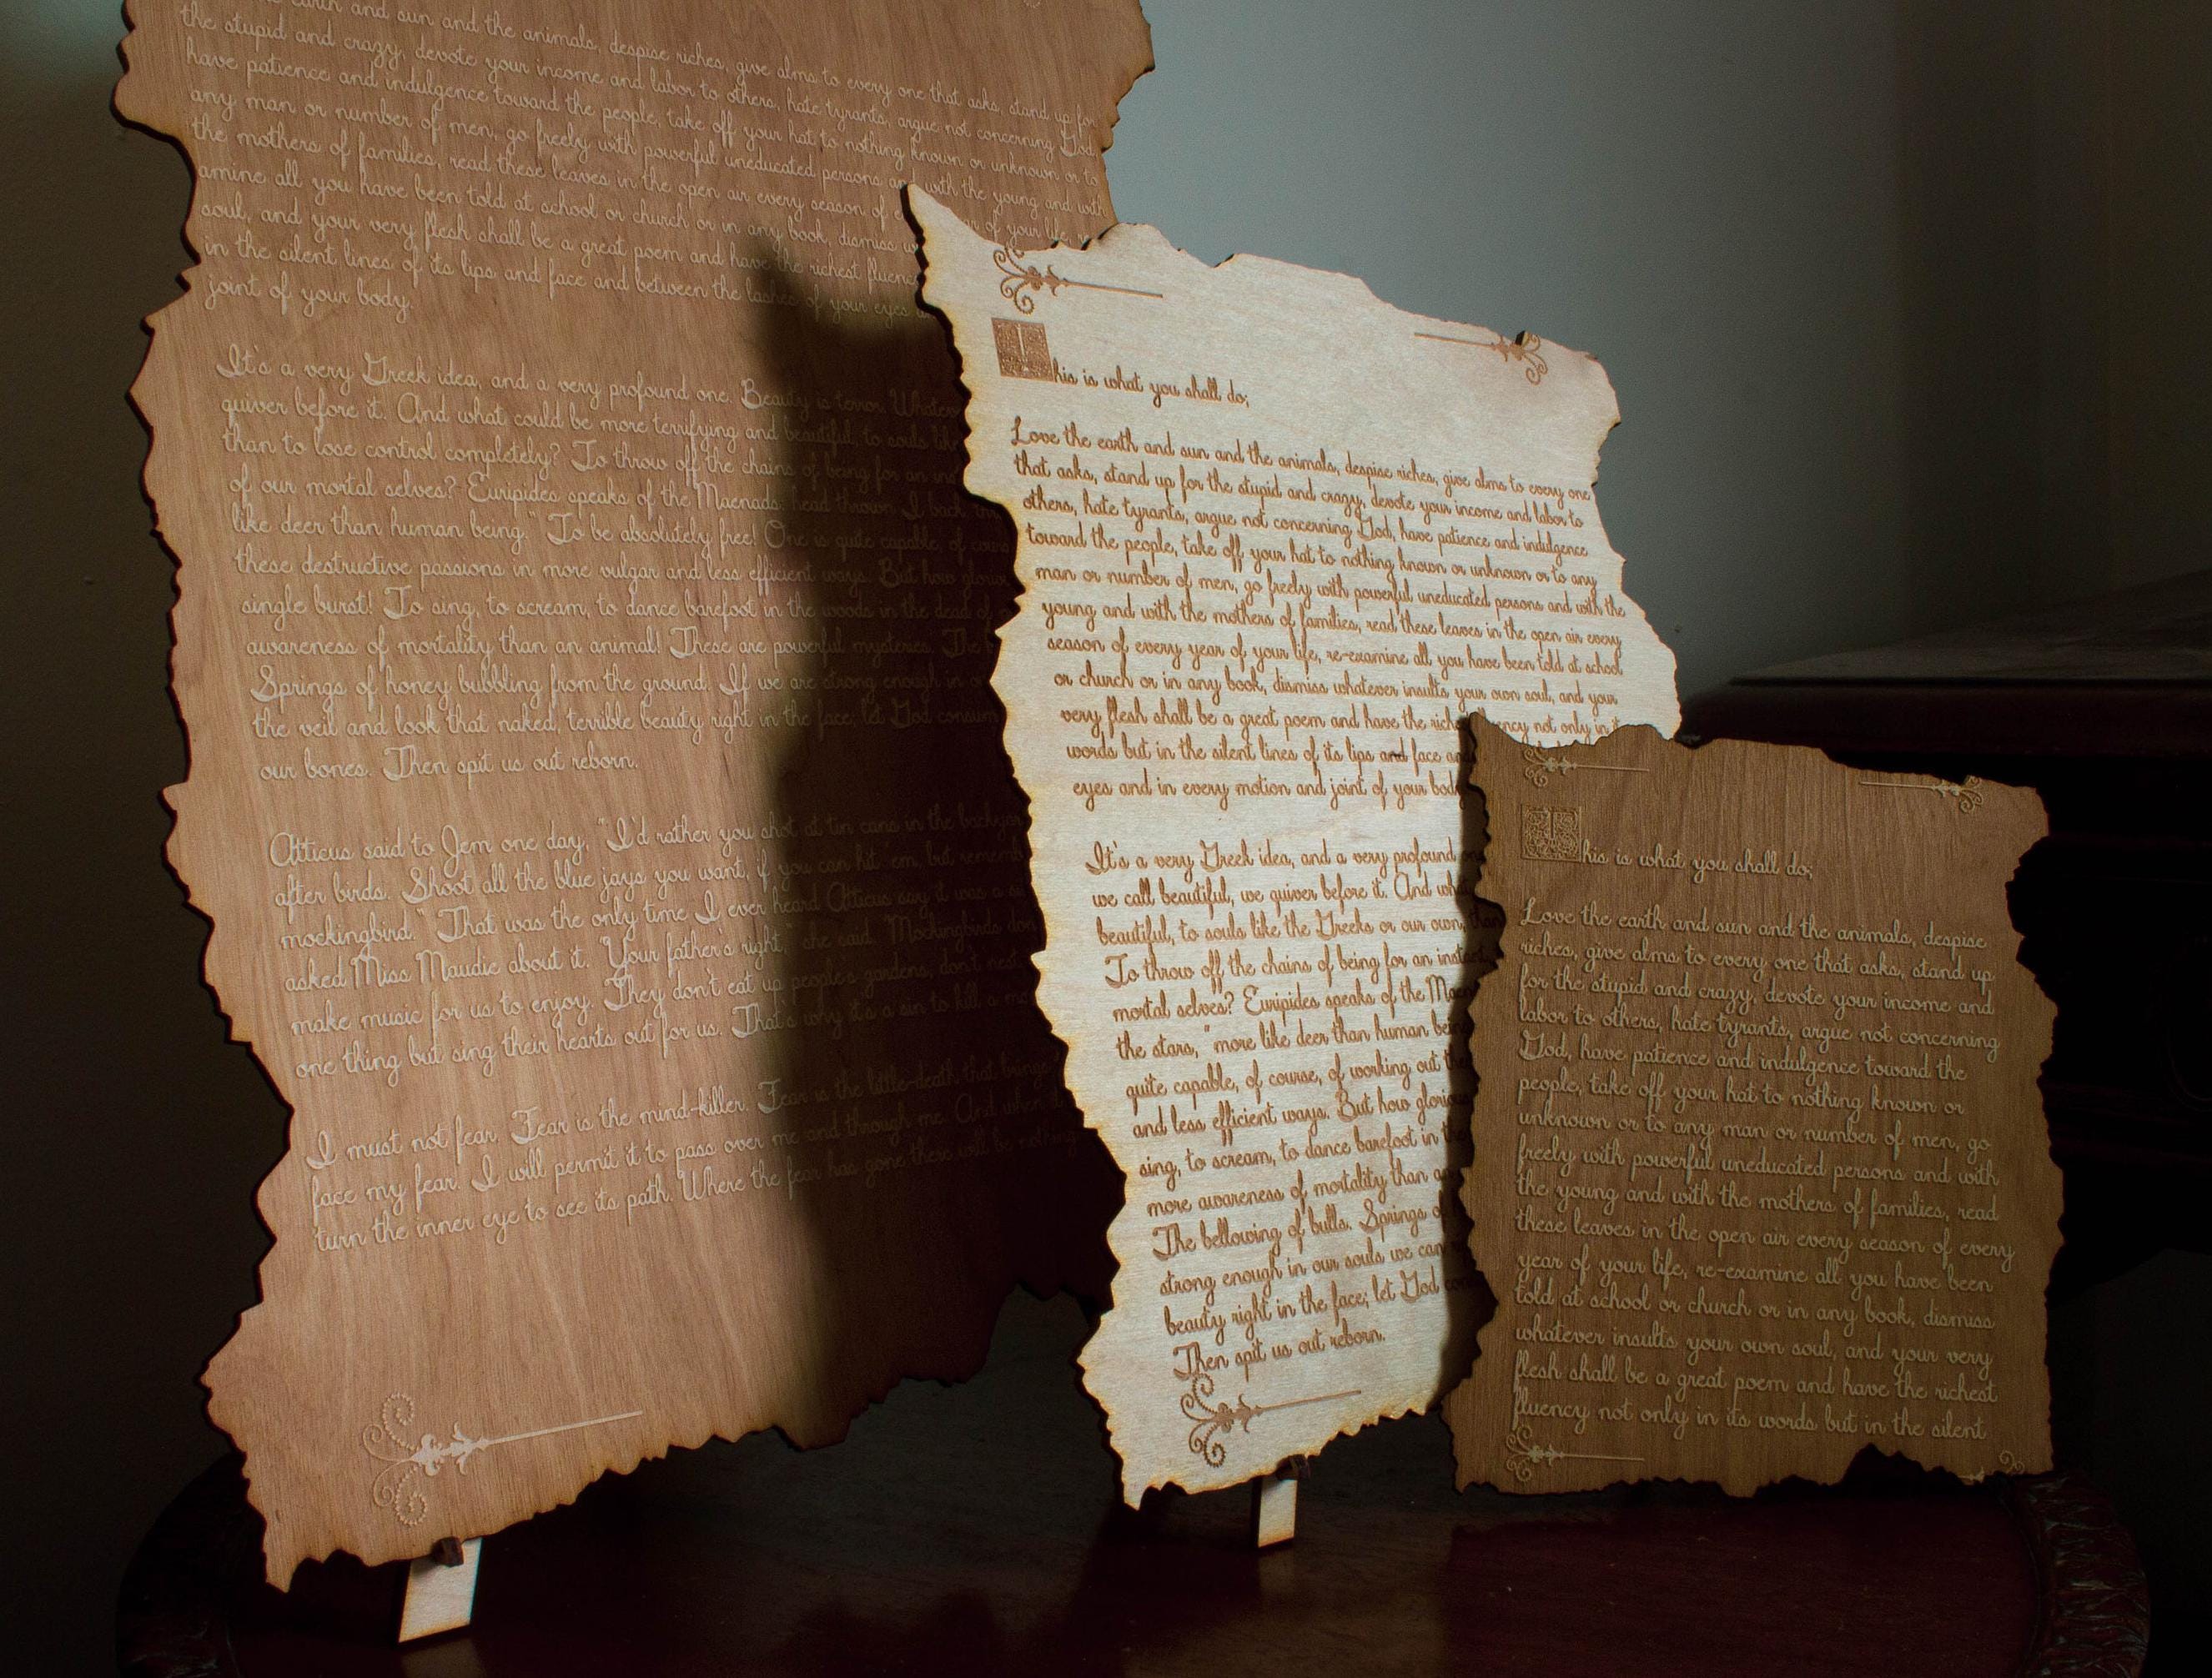 earth and sun and the animals, despise riches, give alms to every one that asks, stand up for
the stupid and crazy, devote your income and labor to others, hate tyrants, argue not concerning God,
have patience and indulgence toward the people, take off your hat to nothing known or unknown or to
any man or number of men, go freely with powerful uneducated persons and with the young and with
the mothers of families, read these leaves in the open air every season of of your life,
amine all you have been told at school or church or in any book, dismiss
soul, and your very flesh shall be a great poem and have the richest fluency
in the silent lines of its lips and face and between the lashes of your eyes
joint of your body.
It's a very Greek idea, and a very profound one. Beauty is terror. Whatever
quiver before it. And what could be more terrifying and beautiful, to souls like
than to lose control completely? To throw off the chains of being for an
of our mortal selves? Euripides speaks of the Maenads: head thrown I back
like deer than human being." To be absolutely free! One is quite capable, of course
these destructive passions in more vulgar and less efficient ways. But how
single burst! To sing, to scream, to dance barefoot in the woods in the dead of
awareness of mortality than an animal! These are powerful mysteries. The
Springs of honey bubbling from the ground. If we are strong enough in
the veil and look that naked, terrible beauty right in the face; let God consume
our bones. Then spit us out reborn.
Atticus said to Jem one day, "I'd rather you shot at tin cans in the backyard
after birds. Shoot all the blue jays you want, if you can hit 'em, but remember
mockingbird." That was the only time I ever heard Atticus say it was a
asked Miss Maudie about it. "Your father's right," she said. "Mockingbirds don
make music for us to enjoy. They don't eat up people's gardens, don't nest
one thing but sing their hearts out for us. That's why it's a sin to kill a
I must not fear. Fear is the mind-killer. Fear is the little-death that brings
face my fear. I will permit it to pass over me and through me. And when
turn the inner eye to see its path. Where the fear has gone there will be nothing
This is what you shall do;
Love the earth and sun and the animals, despise riches, give alms to every one
that asks, stand up for the stupid and crazy, devote your income and labor to
others, hate tyrants, argue not concerning God, have patience and indulgence
toward the people, take off your hat to nothing known or unknown or to any
man or number of men, go freely with powerful uneducated persons and with the
young and with the mothers of families, read these leaves in the open air every
season of every year of your life, re-examine all you have been told at school
or church or in any book, dismiss whatever insults your own soul, and your
very flesh shall be a great poem and have the not only in it
words but in the silent lines of its lips and face
eyes and in every motion and joint of your body
It's a very Greek idea, and a very profound
we call beautiful, we quiver before it. And
beautiful, to souls like the Greeks or our own, than
To throw off the chains of being for an instant
mortal selves? Euripides speaks of the
the stars, "more like deer than human
quite capable, of course, of working out
and less efficient ways. But how
sing, to scream, to dance barefoot in the
more awareness of mortality than
The bellowing of bulls. Springs of
strong enough in our souls we can
beauty right in the face; let God
Then spit us out reborn.
This is what you shall do;
Love the earth and sun and the animals, despise
riches, give alms to every one that asks, stand up
for the stupid and crazy, devote your income and
labor to others, hate tyrants, argue not concerning
God, have patience and indulgence toward the
people, take off your hat to nothing known or
unknown or to any man or number of men, go
freely with powerful uneducated persons and with
the young and with the mothers of families, read
these leaves in the open air every season of every
year of your life, re-examine all you have been
told at school or church or in any book, dismiss
whatever insults your own soul, and your very
flesh shall be a great poem and have the richest
fluency not only in its words but in the silent